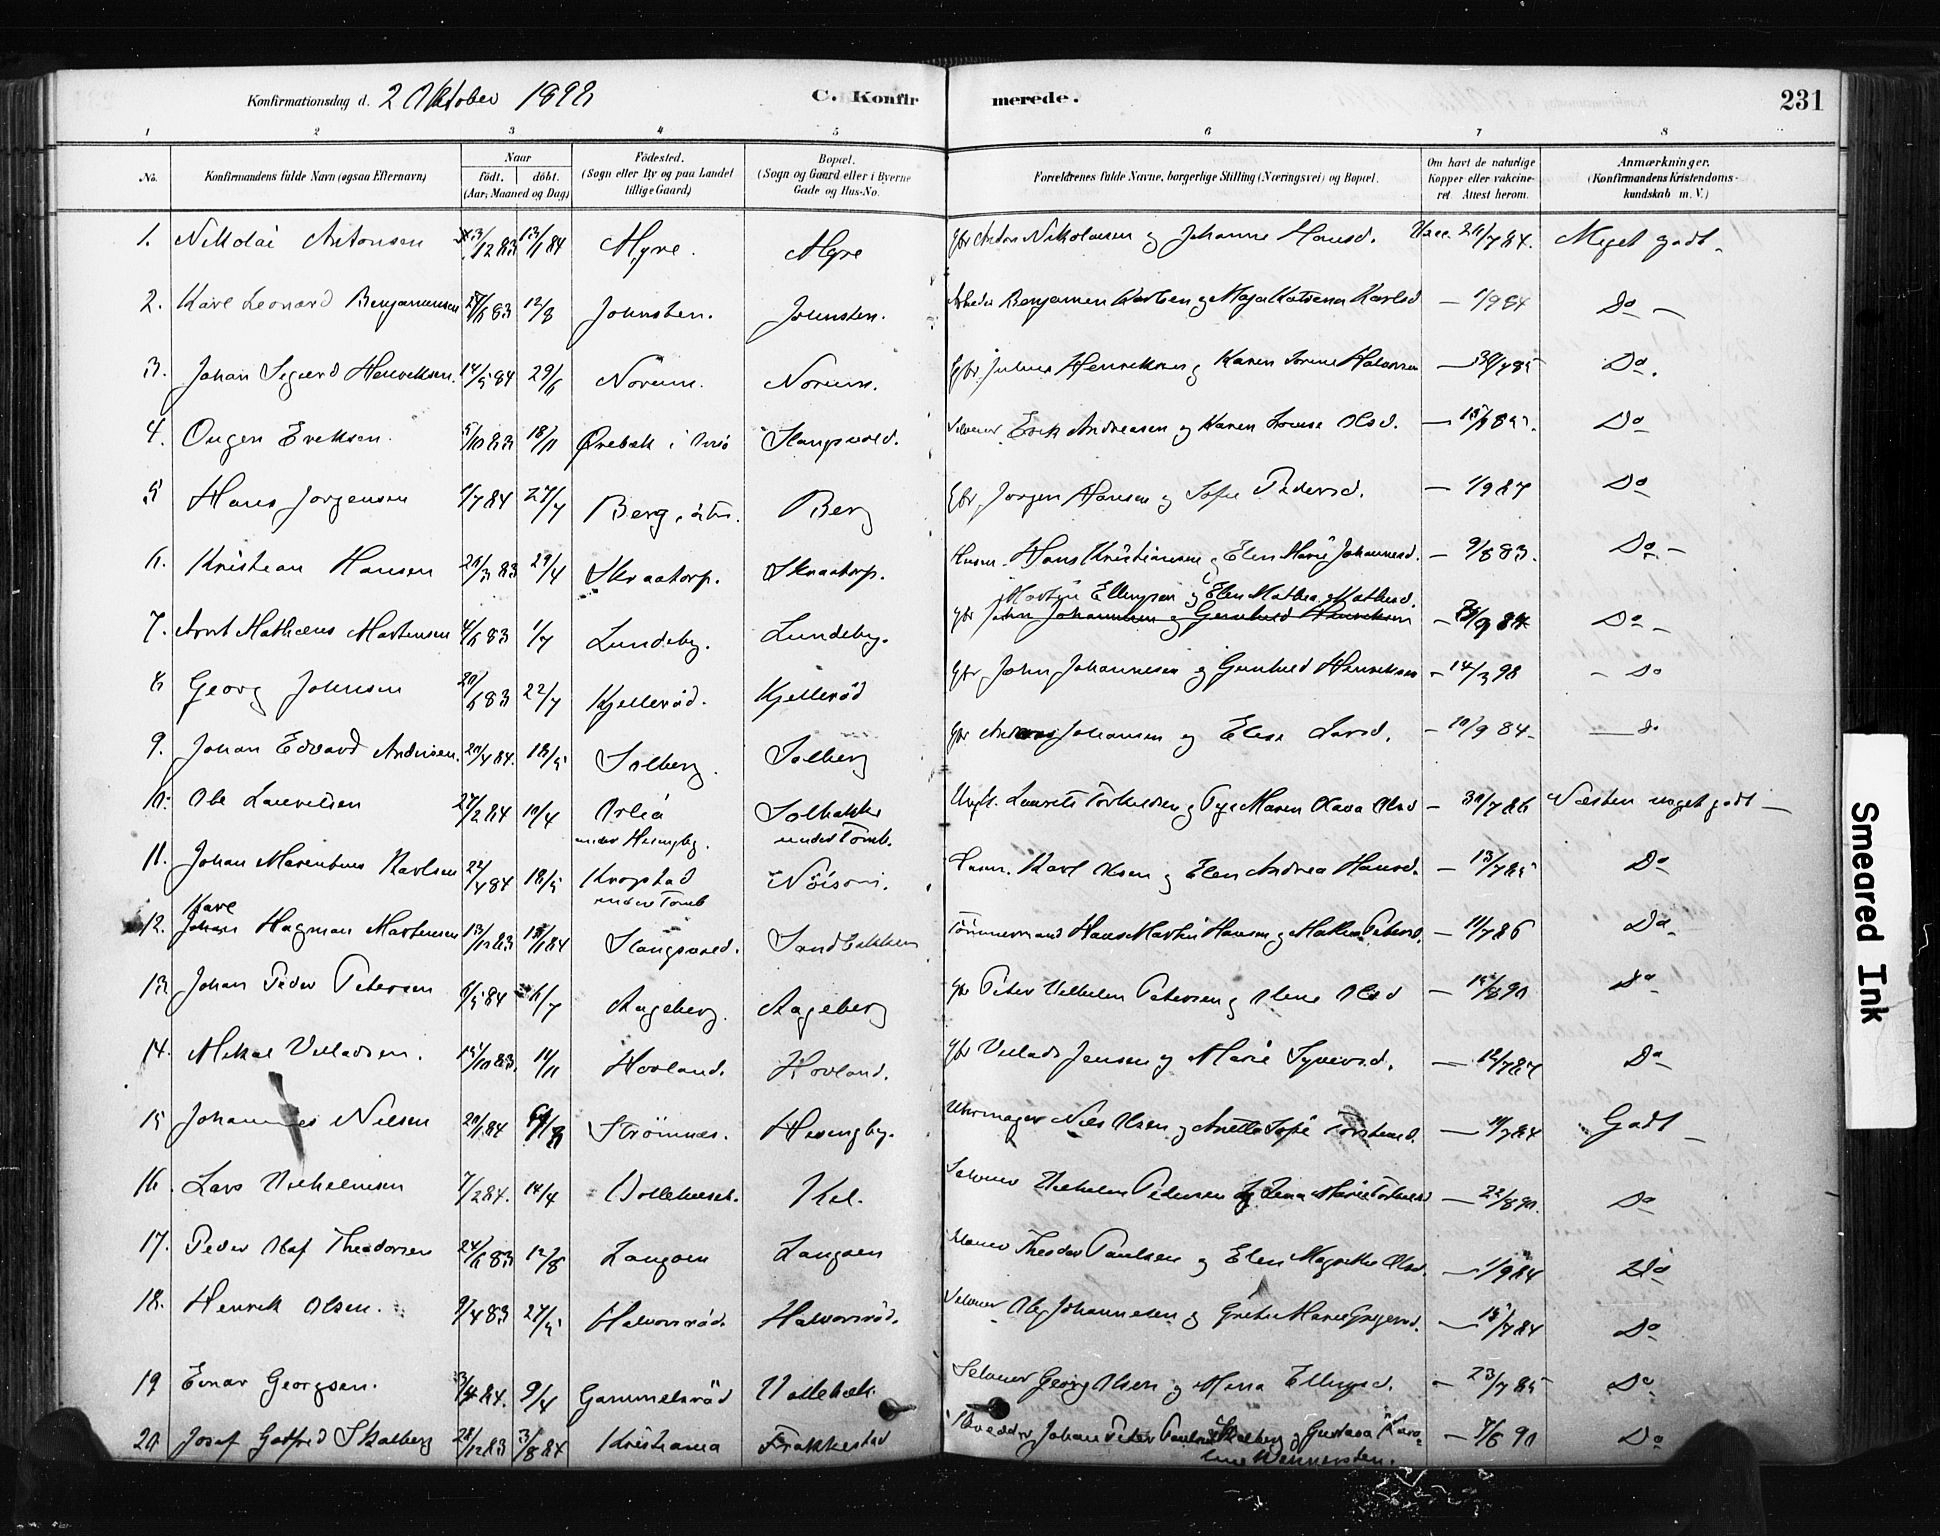 Konfirmationsdag d. 2 Oktober 1898
C. Konfirmerede.
231
1 2 3 4 5 6 7 8
No. Konfirmandens fulde Navn (ogsaa Efternavn) Naar Født. døbt. (Aar, Maaned og Dag) Fødested. (Sogn eller By og paa Landet tillige Gaard.) Bopæl. (Sogn og Gaard eller i Byerne Gade og Hus-No. Forældrenes fulde Navne, borgerlige Stilling (Næringsvei) og Bopæl. Om havt de naturlige Kopper eller vakcineret. Attest herom. Anmærkninger. (Konfirmandens Kristendomskundskab m. V.)
1. Nikolai Antonsen 12 83 13/1 84 Myre. Myre Gbr Anton Nikolaisen og Johanne Hansd. Vacc. 7 84. Meget godt
2. Karl Leonard Benjaminsen 83 12/8 Johnsten. Johnsten. Arbeider Benjamin Karlsen og Maja Katrina Karlsd — 1/9 84 Do —
3. Johan Sigurd Henriksen. 14/5 84 29/6 Norum. Norum. Gbr. Julius Henriksen og Karen Sorine Halvorsen — 30/7 85 Do.
4. Ougen Eriksen. 5/10 83 18/11 Ørebæk i Onsø Slangsvold. Selveier Erik Andreasen og Karen Louise Olsd. — Do
5 Hans Jørgensen 84 27/7 Berg Berg Gbr. Jørgen Hansen og Sofie Pedersd. — 1/9 87 Do
6. Kristian Hansen 20/3 83 29/4 Skraatorp. Skraatorp. Husm. Hans Kristiansen og Elen Marie Johannesd. — 9/8 83. Do —
Martin Ellingsen og Elen Mathea Mathisd.
7. Arnt Mathæus Martinsen 4/6 83 1/7 Lundeby. Lundeby. Gbr John Johannesen og Gunhild Henriksen — 9 84 Do —
8 Georg Johnsen 20/6 83 22/7 Kjellerød. Kjellerød Gbr John Johannesen og Gunhild Henriksen — 14/3 98 — Do
9. Johan Edvard Andersen. 20/4 84. 18/5 Solberg. Solberg Gbr Johansen og Elise Larsd. — 10/9 84 — do
10. Ole Lauritsen 27/2 84 10/4 Orliá under Husingby. Solbakke under Tomb. Laurits Torkildsen og Maren Olava Olsd — 30/7 86 Næsten meget godt —
11. Johan Marentius Karlsen 22/4 84 18/5 Kropstad under Tomb Nöisom. Husm. Karl Olsen og Elen Andrea Hansd. — 13/7 85 Do
Karl
12. Johan Hagman Martinsen 13/12 83 1 84 Slangsvold. Sandbakken Tømmermand Hans Martin Hansen og Mathea Petersd. — 11/7 86 Do
13 Johan Peder Petersen 5 84 6/7 Aageberg. Aageberg Gbr Peter Vilhelm Petersen og Olene Olsd — 15/8 90 Do
14. Mikal Villadsen. 10 83. 11/11 Hovland. Hovland. Gbr Villads Jensen og Marie Syversd. — 12/7 84 Do
15 Johannes Nilsen 20/1 84 Strömnes. Husingby. Uhrmager Nils Olsen og Anette Sofie Torstensd. — Godt —
16. Lars Vilhelmsen 7/2 84. 14/4 Vollehuset. Kil. Selveier Vilhelm Pedersen og Lena Marie Torkildsd — 22/8 90. Do
17. Peder Olaf Theodorsen 24/6 83 12/8 Langøen Langøen Selveier Theodor Paulsen og Elen Magrethe Olsd. — 1/9 84 Do
18. Henrik Olsen. 9/4 83 27/5 Halvorsrød. Halvorsrød. Selveier Ole Johannesen og Grethe Marie Gregersd. — 15/7 84 Do
19 Einar Georgsen. 3/4 84. 9/4 Gammelsrød Vallebæk Selveier Georg Olsen og Mina Ellingsd. — 23/7 85 Do
20 Josef Gotfred Skolberg 28/12 83 3/8 84 Kristiania Frakkestad Johan Peter Paulsen Skolberg og Gustava Karoline Wennersten. — 7/6 90 Do
Smeared Ink